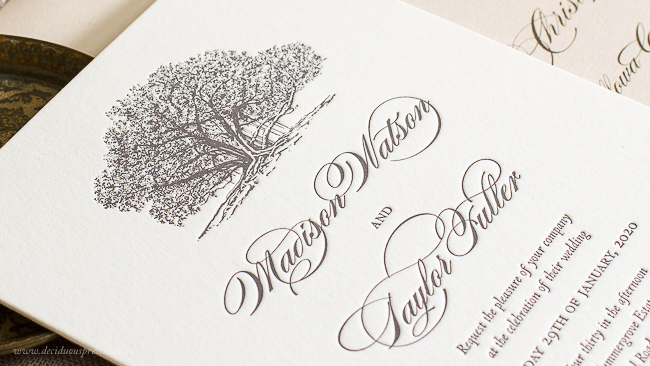 Madison Watson
AND
Taylor Fuller
Request the pleasure of your company
at the celebration of their wedding
DAY 29TH OF JANUARY, 2020
thirty in the afternoon
www.deciduouspre